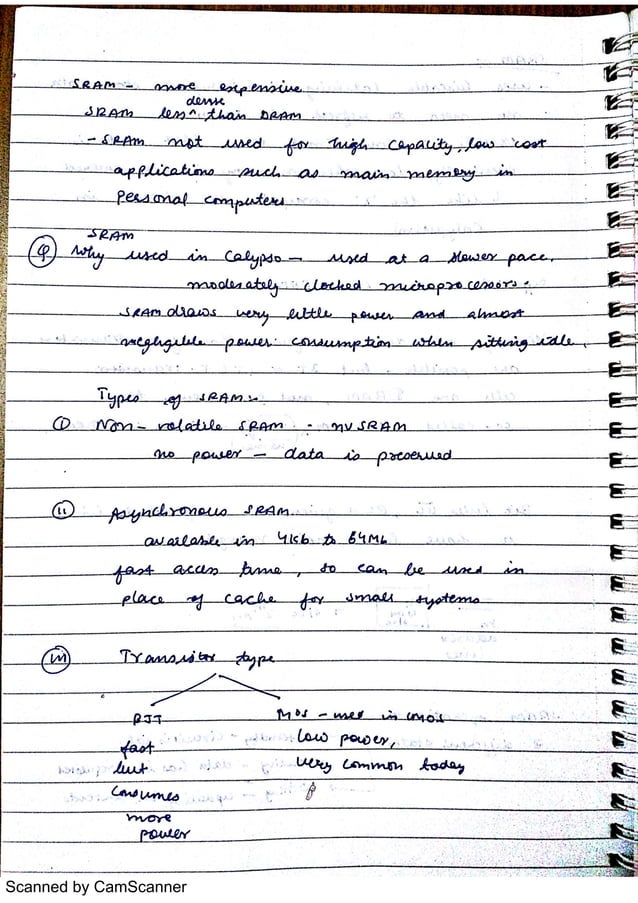 SRAM - more expensive
SRAM less ^dense than DRAM
- SRAM not used for high capacity, low cost
applications such as main memory in
Personal computers
SRAM
Q Why used in Calypso - used at a slower pace,
moderately clocked microprocessors.
SRAM draws very little power and almost
neglgible power consumption when sitting idle.
Types of SRAM:-
i Non-volatile SRAM - nvSRAM
no power - data is preserved
ii Asynchronous SRAM
available in 4kb to 64Mb
fast access time, so can be used in
place of cache for small systems
iii Transistor type
BJT MOS - used in CMOS
fast low power,
but very common today
consumes
more
power
Scanned by CamScanner